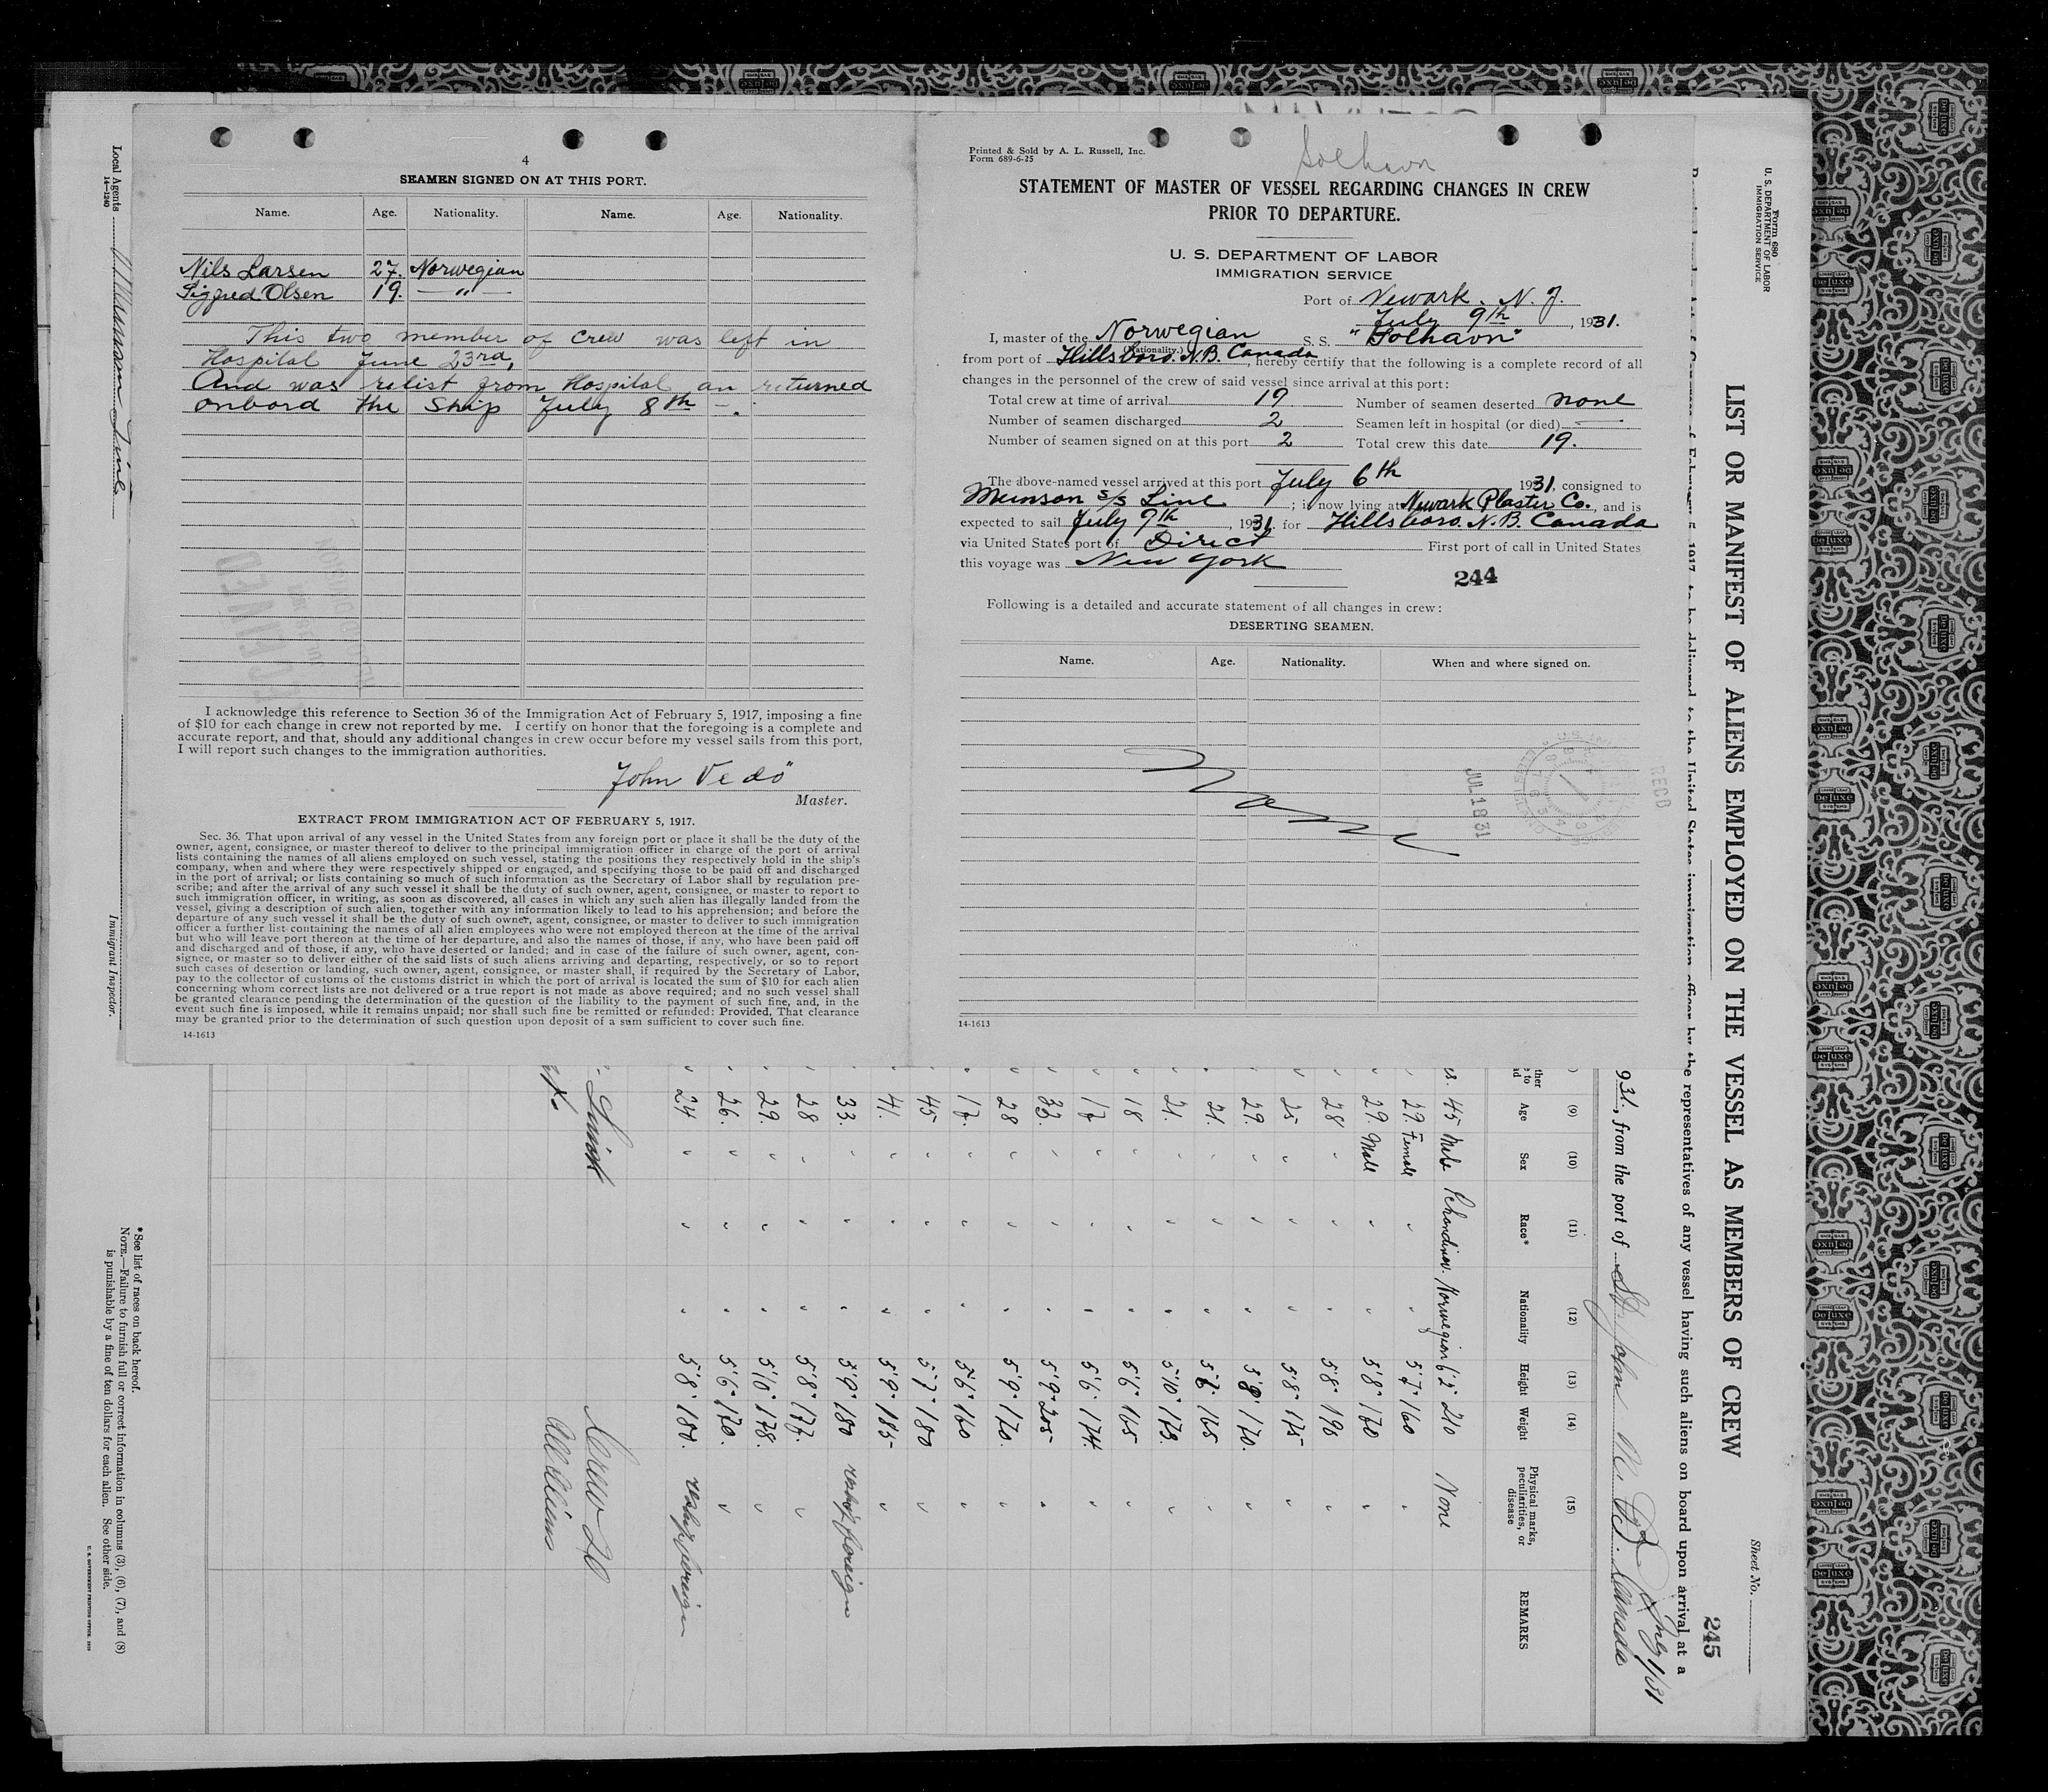 4
SEAMEN SIGNED ON AT THIS PORT.
Name. Age. Nationality. Name. Age. Nationality.
Nils Larsen 27. Norwegian
Sigfred Olsen 19. — " —
This two member of crew was left in
Hospital June 23rd,
And was relist from Hospital an returned
onbord the Ship July 8th —.
I acknowledge this reference to Section 36 of the Immigration Act of February 5, 1917, imposing a fine
of $10 for each change in crew not reported by me. I certify on honor that the foregoing is a complete and
accurate report, and that, should any additional changes in crew occur before my vessel sails from this port,
I will report such changes to the immigration authorities.
John Vedö
Master.
EXTRACT FROM IMMIGRATION ACT OF FEBRUARY 5, 1917.
Sec. 36. That upon arrival of any vessel in the United States from any foreign port or place it shall be the duty of the
owner, agent, consignee, or master thereof to deliver to the principal immigration officer in charge of the port of arrival
lists containing the names of all aliens employed on such vessel, stating the positions they respectively hold in the ship's
company, when and where they were respectively shipped or engaged, and specifying those to be paid off and discharged
in the port of arrival; or lists containing so much of such information as the Secretary of Labor shall by regulation pre-
scribe; and after the arrival of any such vessel it shall be the duty of such owner, agent, consignee, or master to report to
such immigration officer, in writing, as soon as discovered, all cases in which any such alien has illegally landed from the
vessel, giving a description of such alien, together with any information likely to lead to his apprehension; and before the
departure of any such vessel it shall be the duty of such owner, agent, consignee, or master to deliver to such immigration
officer a further list containing the names of all alien employees who were not employed thereon at the time of the arrival
but who will leave port thereon at the time of her departure, and also the names of those, if any, who have been paid off
and discharged and of those, if any, who have deserted or landed; and in case of the failure of such owner, agent, con-
signee, or master so to deliver either of the said lists of such aliens arriving and departing, respectively, or so to report
such cases of desertion or landing, such owner, agent, consignee, or master shall, if required by the Secretary of Labor,
pay to the collector of customs of the customs district in which the port of arrival is located the sum of $10 for each alien
concerning whom correct lists are not delivered or a true report is not made as above required; and no such vessel shall
be granted clearance pending the determination of the question of the liability to the payment of such fine, and, in the
event such fine is imposed, while it remains unpaid; nor shall such fine be remitted or refunded: Provided, That clearance
may be granted prior to the determination of such question upon deposit of a sum sufficient to cover such fine.
14-1613
Printed & Sold by A. L. Russell, Inc.
Form 689-6-25
Solhavn
STATEMENT OF MASTER OF VESSEL REGARDING CHANGES IN CREW
PRIOR TO DEPARTURE.
U. S. DEPARTMENT OF LABOR
IMMIGRATION SERVICE
Port of Newark. N. J.
July 9th, 1931.
I, master of the Norwegian S. S. "Solhavn"
(Nationality.)
from port of Hillsboro. N.B. Canada, hereby certify that the following is a complete record of all
changes in the personnel of the crew of said vessel since arrival at this port:
Total crew at time of arrival 19 Number of seamen deserted none
Number of seamen discharged 2 Seamen left in hospital (or died) —
Number of seamen signed on at this port 2 Total crew this date 19.
The above-named vessel arrived at this port July 6th 1931, consigned to
Munson S/S Line ; is now lying at Newark Plaster Co., and is
expected to sail July 9th, 1931 for Hillsboro. N.B. Canada
via United States port of Direct First port of call in United States
this voyage was New York
244
Following is a detailed and accurate statement of all changes in crew:
DESERTING SEAMEN.
Name. Age. Nationality. When and where signed on.
None
JUL 18 31
RECD
14-1613
Form 680
U. S. DEPARTMENT OF LABOR
IMMIGRATION SERVICE
Sheet No.
245
LIST OR MANIFEST OF ALIENS EMPLOYED ON THE VESSEL AS MEMBERS OF CREW
to be delivered to the United States immigration officer by the representatives of any vessel having such aliens on board upon arrival at a
July 1/31
931., from the port of St. John N. Bd. Canada
(9) (10) (11) (12) (13) (14) (15)
Age Sex Race* Nationality Height Weight Physical marks, peculiarities, or disease REMARKS
45 Male Schandinav. Norwegian 6'2" 210 None
29. Female " " 5'7" 160 "
29. Male " " 5'8" 160 "
28 " " " 5'8" 190 "
25 " " " 5'8" 175 "
29. " " " 5'8" 170. "
21. " " " 5'6" 165 "
21. " " " 5'10" 173. "
18 " " " 5'6" 165 "
17 " " " 5'6" 174. "
33. " " " 5'9" 205 "
28 " " " 5'9" 170. "
17. " " " 5'6" 160 "
45 " " " 5'7" 180 "
41. " " " 5'9" 185 "
33. " " " 5'9" 180 reship foreign
28 " " " 5'8" 177. "
29. " " " 5'10" 178. "
26. " " " 5'6" 170. "
24 " " " 5'8" 180. reship foreign
Crew 20
All Aliens
*See list of races on back hereof.
NOTE.—Failure to furnish full or correct information in columns (3), (6), (7), and (8)
is punishable by a fine of ten dollars for each alien. See other side.
U. S. GOVERNMENT PRINTING OFFICE
Local Agents Munson Line
14—1240
Immigrant Inspector.